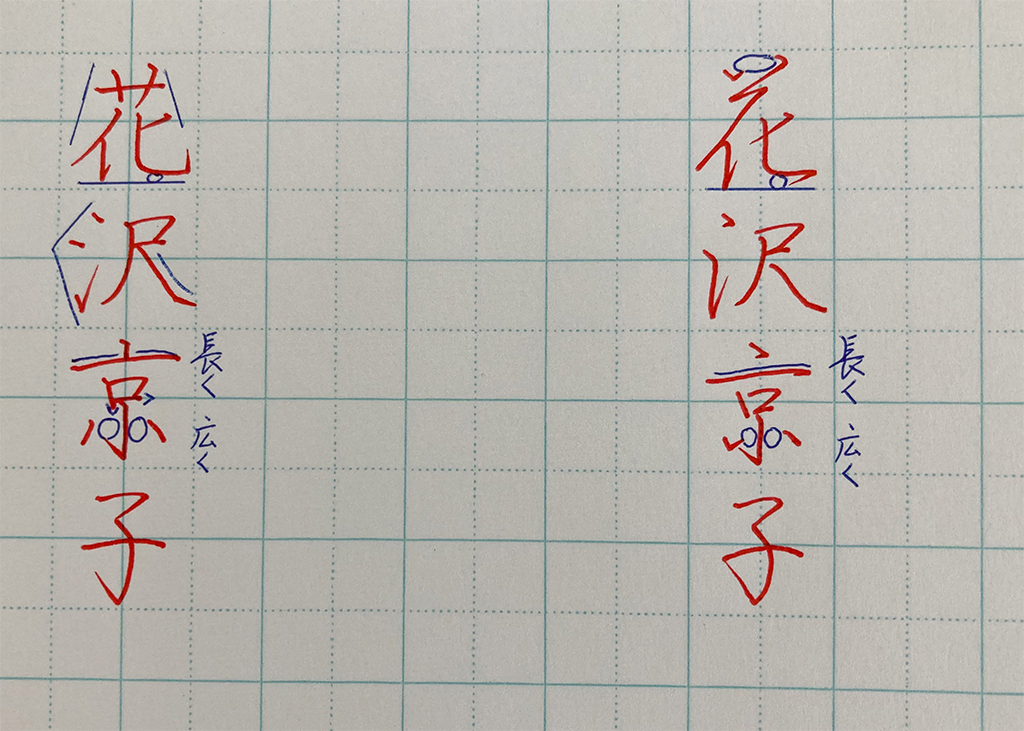 花沢京子
長く 広く
花沢京子
長く 広く